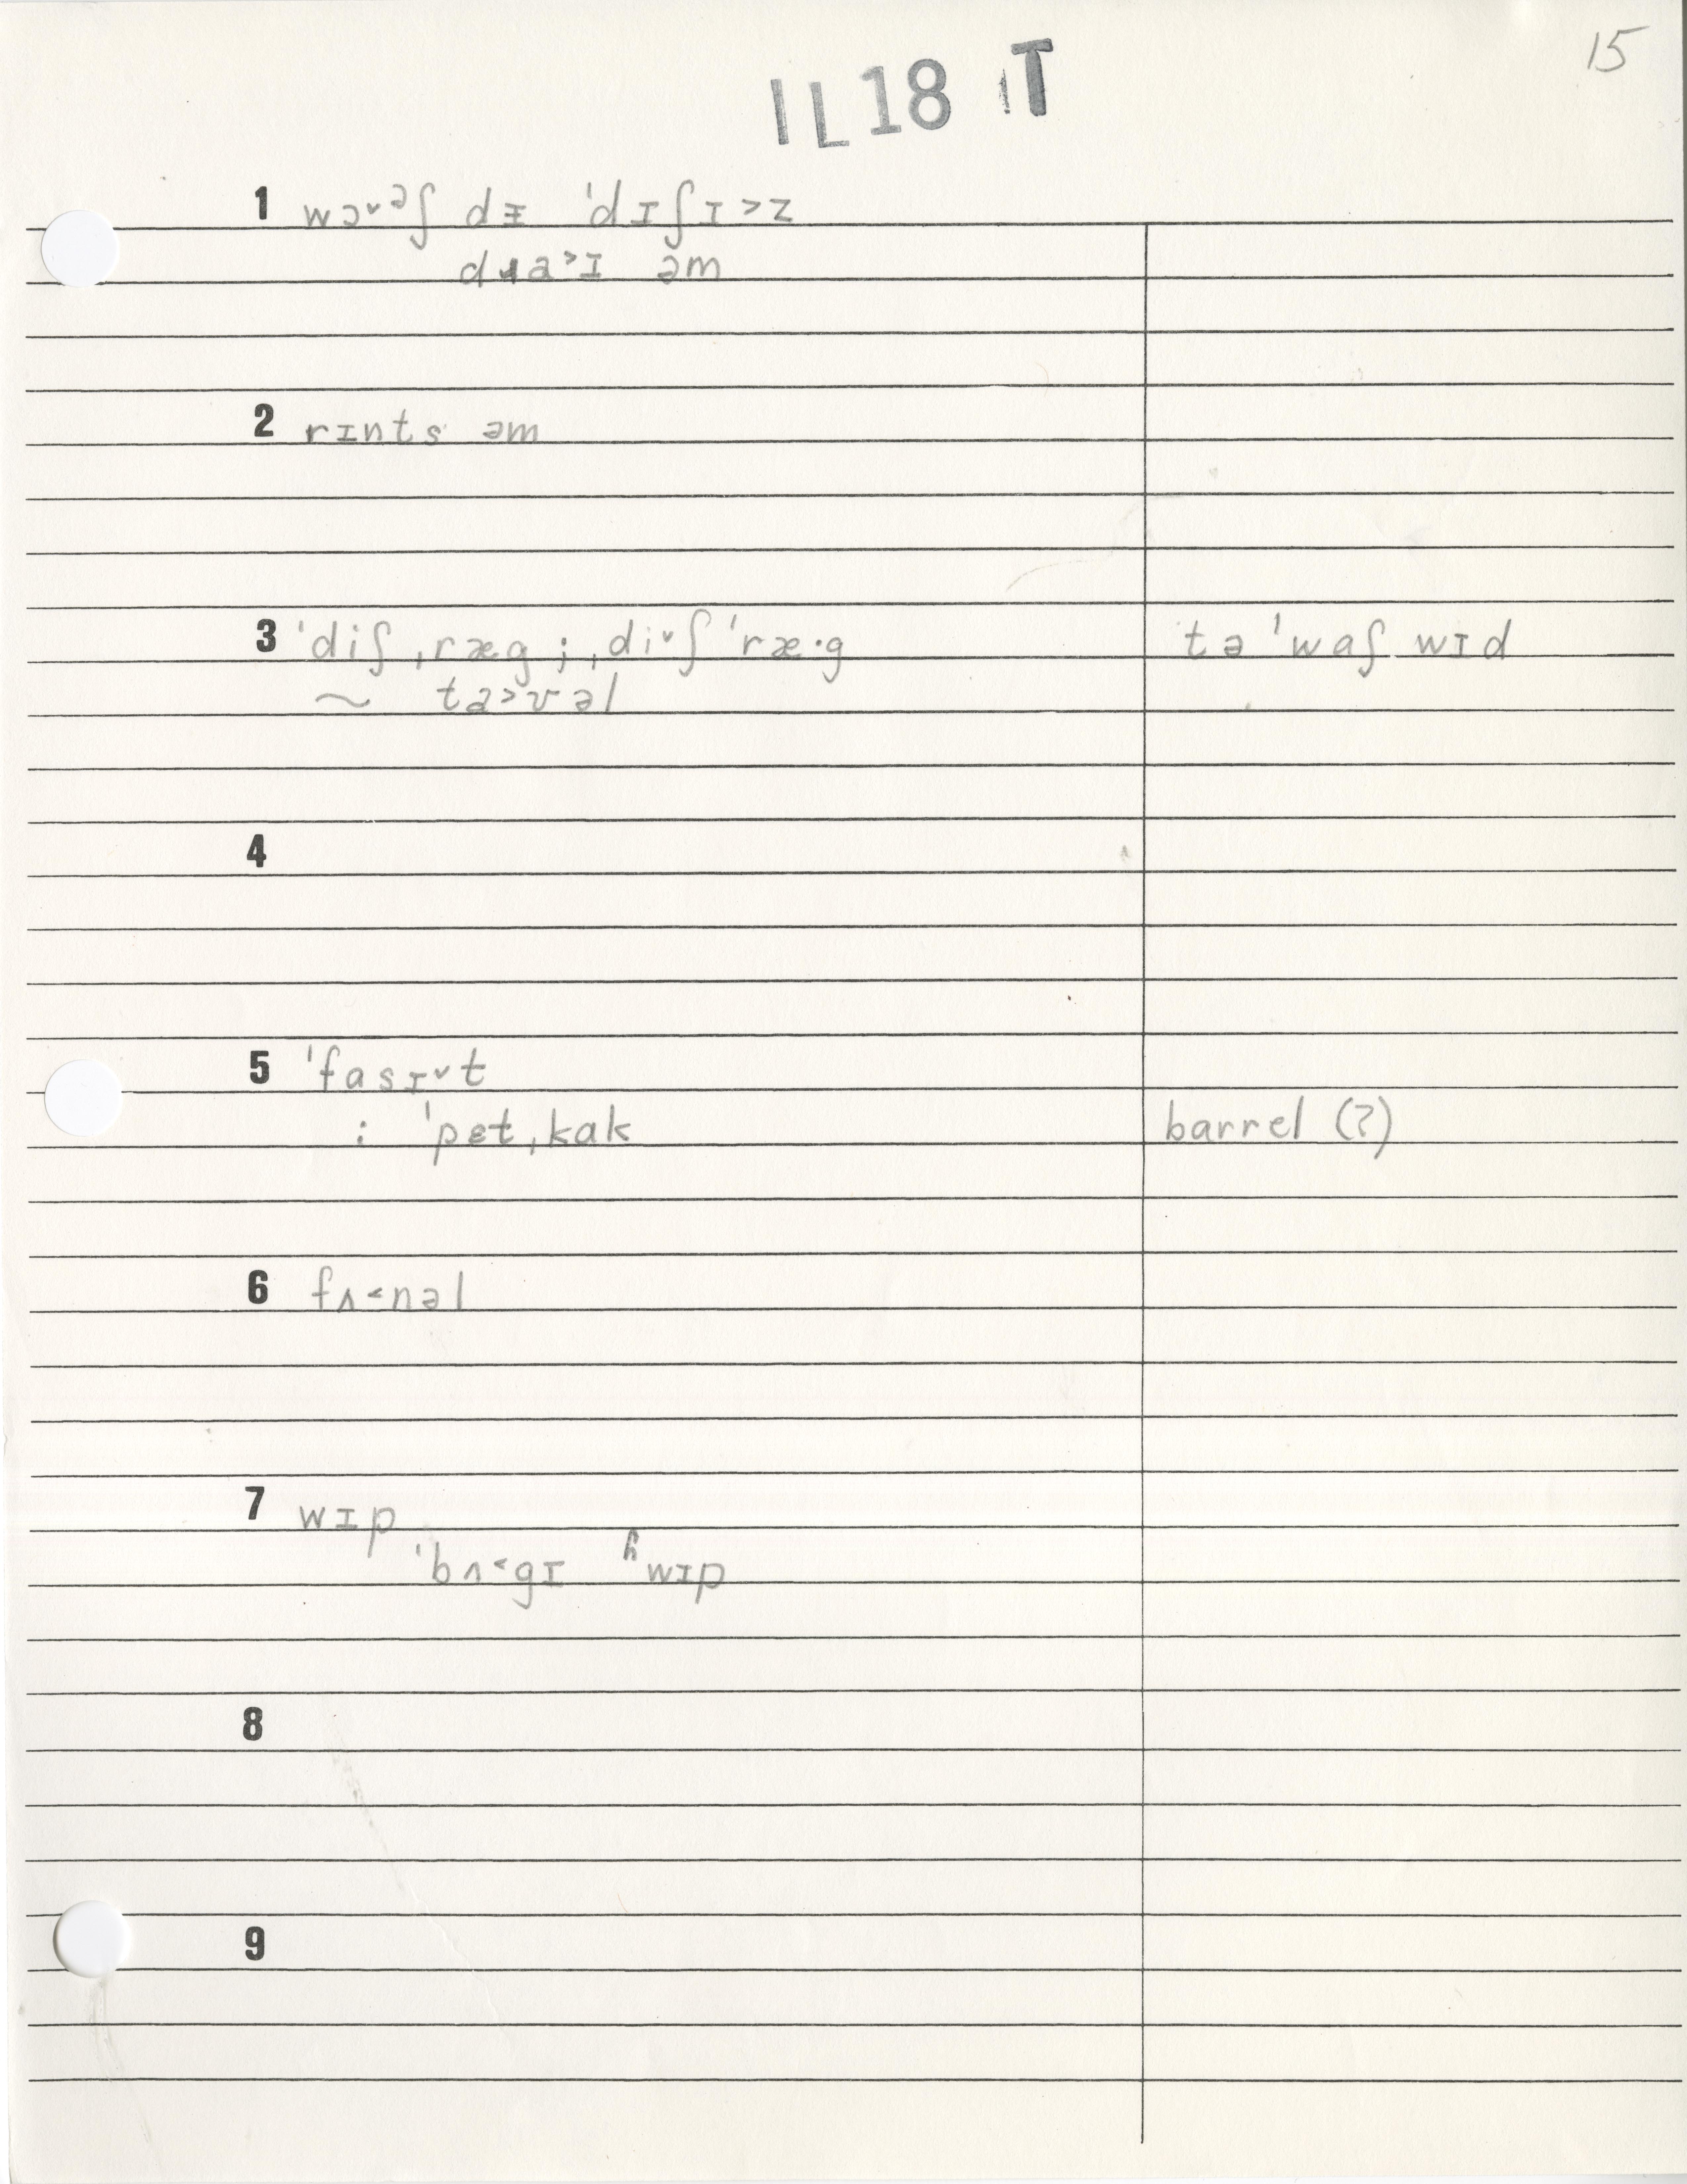 15
IL18 T
1 wɔ˅ᵊʃ dᵻ ˈdɪʃɪ˃z
dɹa˃ɪ əm
2 rɪnts əm
3 ˈdiʃˌræg ; ˌdi˅ʃ ˈræ·g tə ˈwaʃ wɪd
~ ta˃ʊəl
4
5 ˈfasɪ˅t
: ˈpɛtˌkak barrel (?)
6 fʌ˂nəl
7 wɪp
ˈbʌ˂gɪ ʰwɪp
8
9